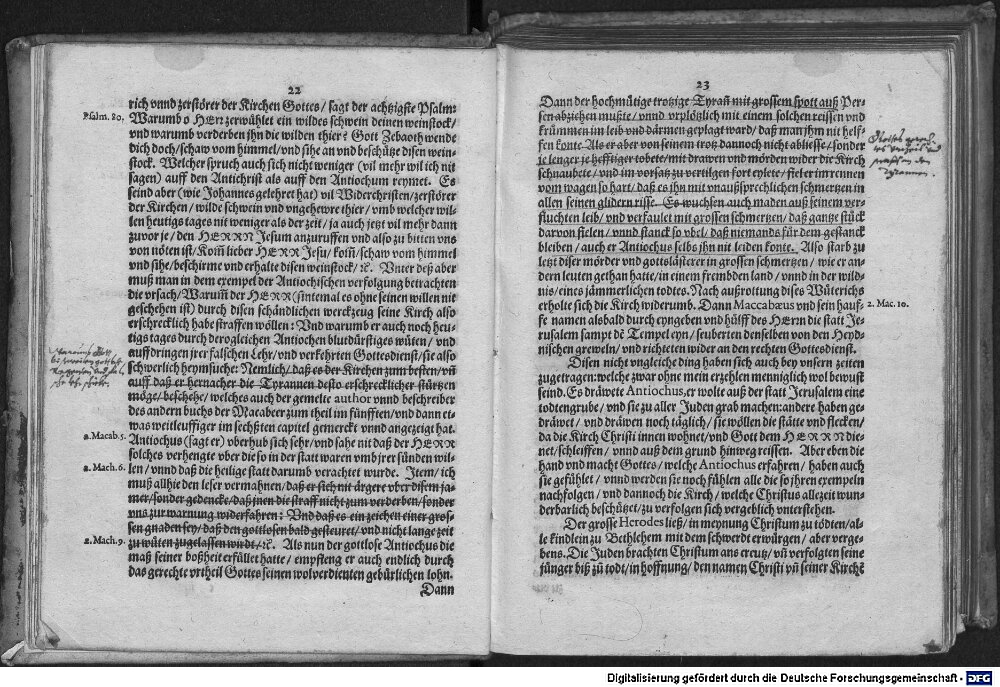 22
rich vnnd zerstörer der Kirchen Gottes / sagt der achtzigste Psalm:
Psalm. 80.
Warumb o HErr zerwühlet ein wildes schwein deinen weinstock /
vnd warumb verderben jhn die wilden thier? Gott Zebaoth wende
dich doch / schaw vom himmel / vnd sihe an vnd beschütze disen wein-
stock. Welcher spruch auch sich nicht weniger (vil mehr wil ich nit
sagen) auff den Antichrist als auff den Antiochum reymet. Es
seind aber (wie Johannes gelehret hat) vil Widerchristen / zerstörer
der Kirchen / wilde schwein vnd vngehewre thier / vmb welcher wil-
len heutigs tages nit weniger als der zeit / ja auch jetzt vil mehr dann
zuvor je / den HERRN Jesum anzuruffen vnd also zu bitten vns
von nöten ist / Kom̃ lieber HERR Jesu / kom̃ / schaw vom himmel
vnd sihe / beschirme vnd erhalte disen weinstock / ꝛc. Vnter deß aber
muß man in dem exempel der Antiochischen verfolgung betrachten
die vrsach / Warum̃ der HERR (sintemal es ohne seinen willen nit
geschehen ist) durch disen schändlichen werckzeug seine Kirch also
erschrecklich habe straffen wöllen: Vnd warumb er auch noch heu-
tigs tages durch derogleichen Antiochen blutdürstiges wüten / vnd
auffdringen jrer falschen Lehr / vnd verkehrten Gottesdienst / sie also
schwerlich heymsuche: Nemlich / daß es der Kirchen zum besten / vñ
auff daß er hernacher die Tyrannen desto erschrecklicher stürtzen
möge / beschehe / welches auch der gemelte author vnnd beschreiber
des andern buchs der Macabeer zum theil im fünfften / vnd dann et-
was weitleuffiger im sechßten capitel gemerckt vnnd angezeigt hat.
2. Macab. 5.
Antiochus (sagt er) vberhub sich sehr / vnd sahe nit daß der HERR
solches verhengte vber die so in der statt waren vmb jrer sünden wil-
2. Mach. 6.
len / vnnd daß die heilige statt darumb verachtet wurde. Item / ich
muß allhie den leser vermahnen / daß er sich nit ärgere vber disem ja-
mer / sonder gedencke / daß jnen die straff nicht zum verderben / sonder
vns zur warnung widerfahren: Vnd daß es ein zeichen einer gros-
sen gnaden sey / daß den gottlosen bald gesteuret / vnd nicht lange zeit
2. Mach. 9.
zu wüten zugelassen wirdt / ꝛc. Als nun der gottlose Antiochus die
maß seiner boßheit erfüllet hatte / empfieng er auch endlich durch
das gerechte vrtheil Gottes seinen wolverdienten gebürlichen lohn.
Dann
23
Dann der hochmütige trotzige Tyrañ mit grossem spott auß Per-
sen abziehen mußte / vnnd vrplötzlich mit einem solchen reissen vnd
krümmen im leib vnd därmen geplagt ward / daß man jhm nit helf-
fen konte. Als er aber von seinem trotz dannoch nicht abliesse / sonder
je lenger je hefftiger tobete / mit drawen vnd mörden wider die Kirch
schnaubete / vnd im vorsatz zu vertilgen fort eylete / fiel er im rennen
vom wagen so hart / daß es jhn mit vnaußsprechlichen schmertzen in
allen seinen glidern risse. Es wuchsen auch maden auß seinem ver-
fluchten leib / vnd verfaulet mit grossen schmertzen / daß gantze stück
darvon fielen / vnnd stanck so vbel / daß niemands für dem gestanck
bleiben / auch er Antiochus selbs jhn nit leiden konte. Also starb zu
letzt diser mörder vnd gottslästerer in grossen schmertzen / wie er an-
dern leuten gethan hatte / in einem frembden land / vnnd in der wild-
nis / eines jämmerlichen todtes. Nach außrottung dises Wüterichs
2. Mac. 10.
erholte sich die Kirch widerumb. Dann Maccabæus vnd sein hauf-
fe namen alsbald durch eyngeben vnd hülff des HErrn die statt Je-
rusalem sampt dẽ Tempel eyn / seuberten denselben von den Heyd-
nischen greweln / vnd richteten wider an den rechten Gottesdienst.
Disen nit vngleiche ding haben sich auch bey vnsern zeiten
zugetragen: welche zwar ohne mein erzehlen menniglich wol bewust
seind. Es dräwete Antiochus, er wolte auß der statt Jerusalem eine
todtengrube / vnd sie zu aller Juden grab machen: andere haben ge-
dräwet / vnd dräwen noch täglich / sie wöllen die stätte vnd flecken /
da die Kirch Christi innen wohnet / vnd Gott dem HERRN die-
net / schleiffen / vnnd auß dem grund hinweg reissen. Aber eben die
hand vnd macht Gottes / welche Antiochus erfahren / haben auch
sie gefühlet / vnnd werden sie noch fühlen alle die so jhren exempeln
nachfolgen / vnd dannoch die Kirch / welche Christus allezeit wun-
derbarlich beschützet / zu verfolgen sich vergeblich vnterstehen.
Der grosse Herodes ließ / in meynung Christum zu tödten / al-
le kindlein zu Bethlehem mit dem schwerdt erwürgen / aber verge-
bens. Die Juden brachten Christum ans creutz / vñ verfolgten seine
jünger biß zū todt / in hoffnung / den namen Christi vñ seiner Kirchẽ
Digitalisierung gefördert durch die Deutsche Forschungsgemeinschaft - DFG